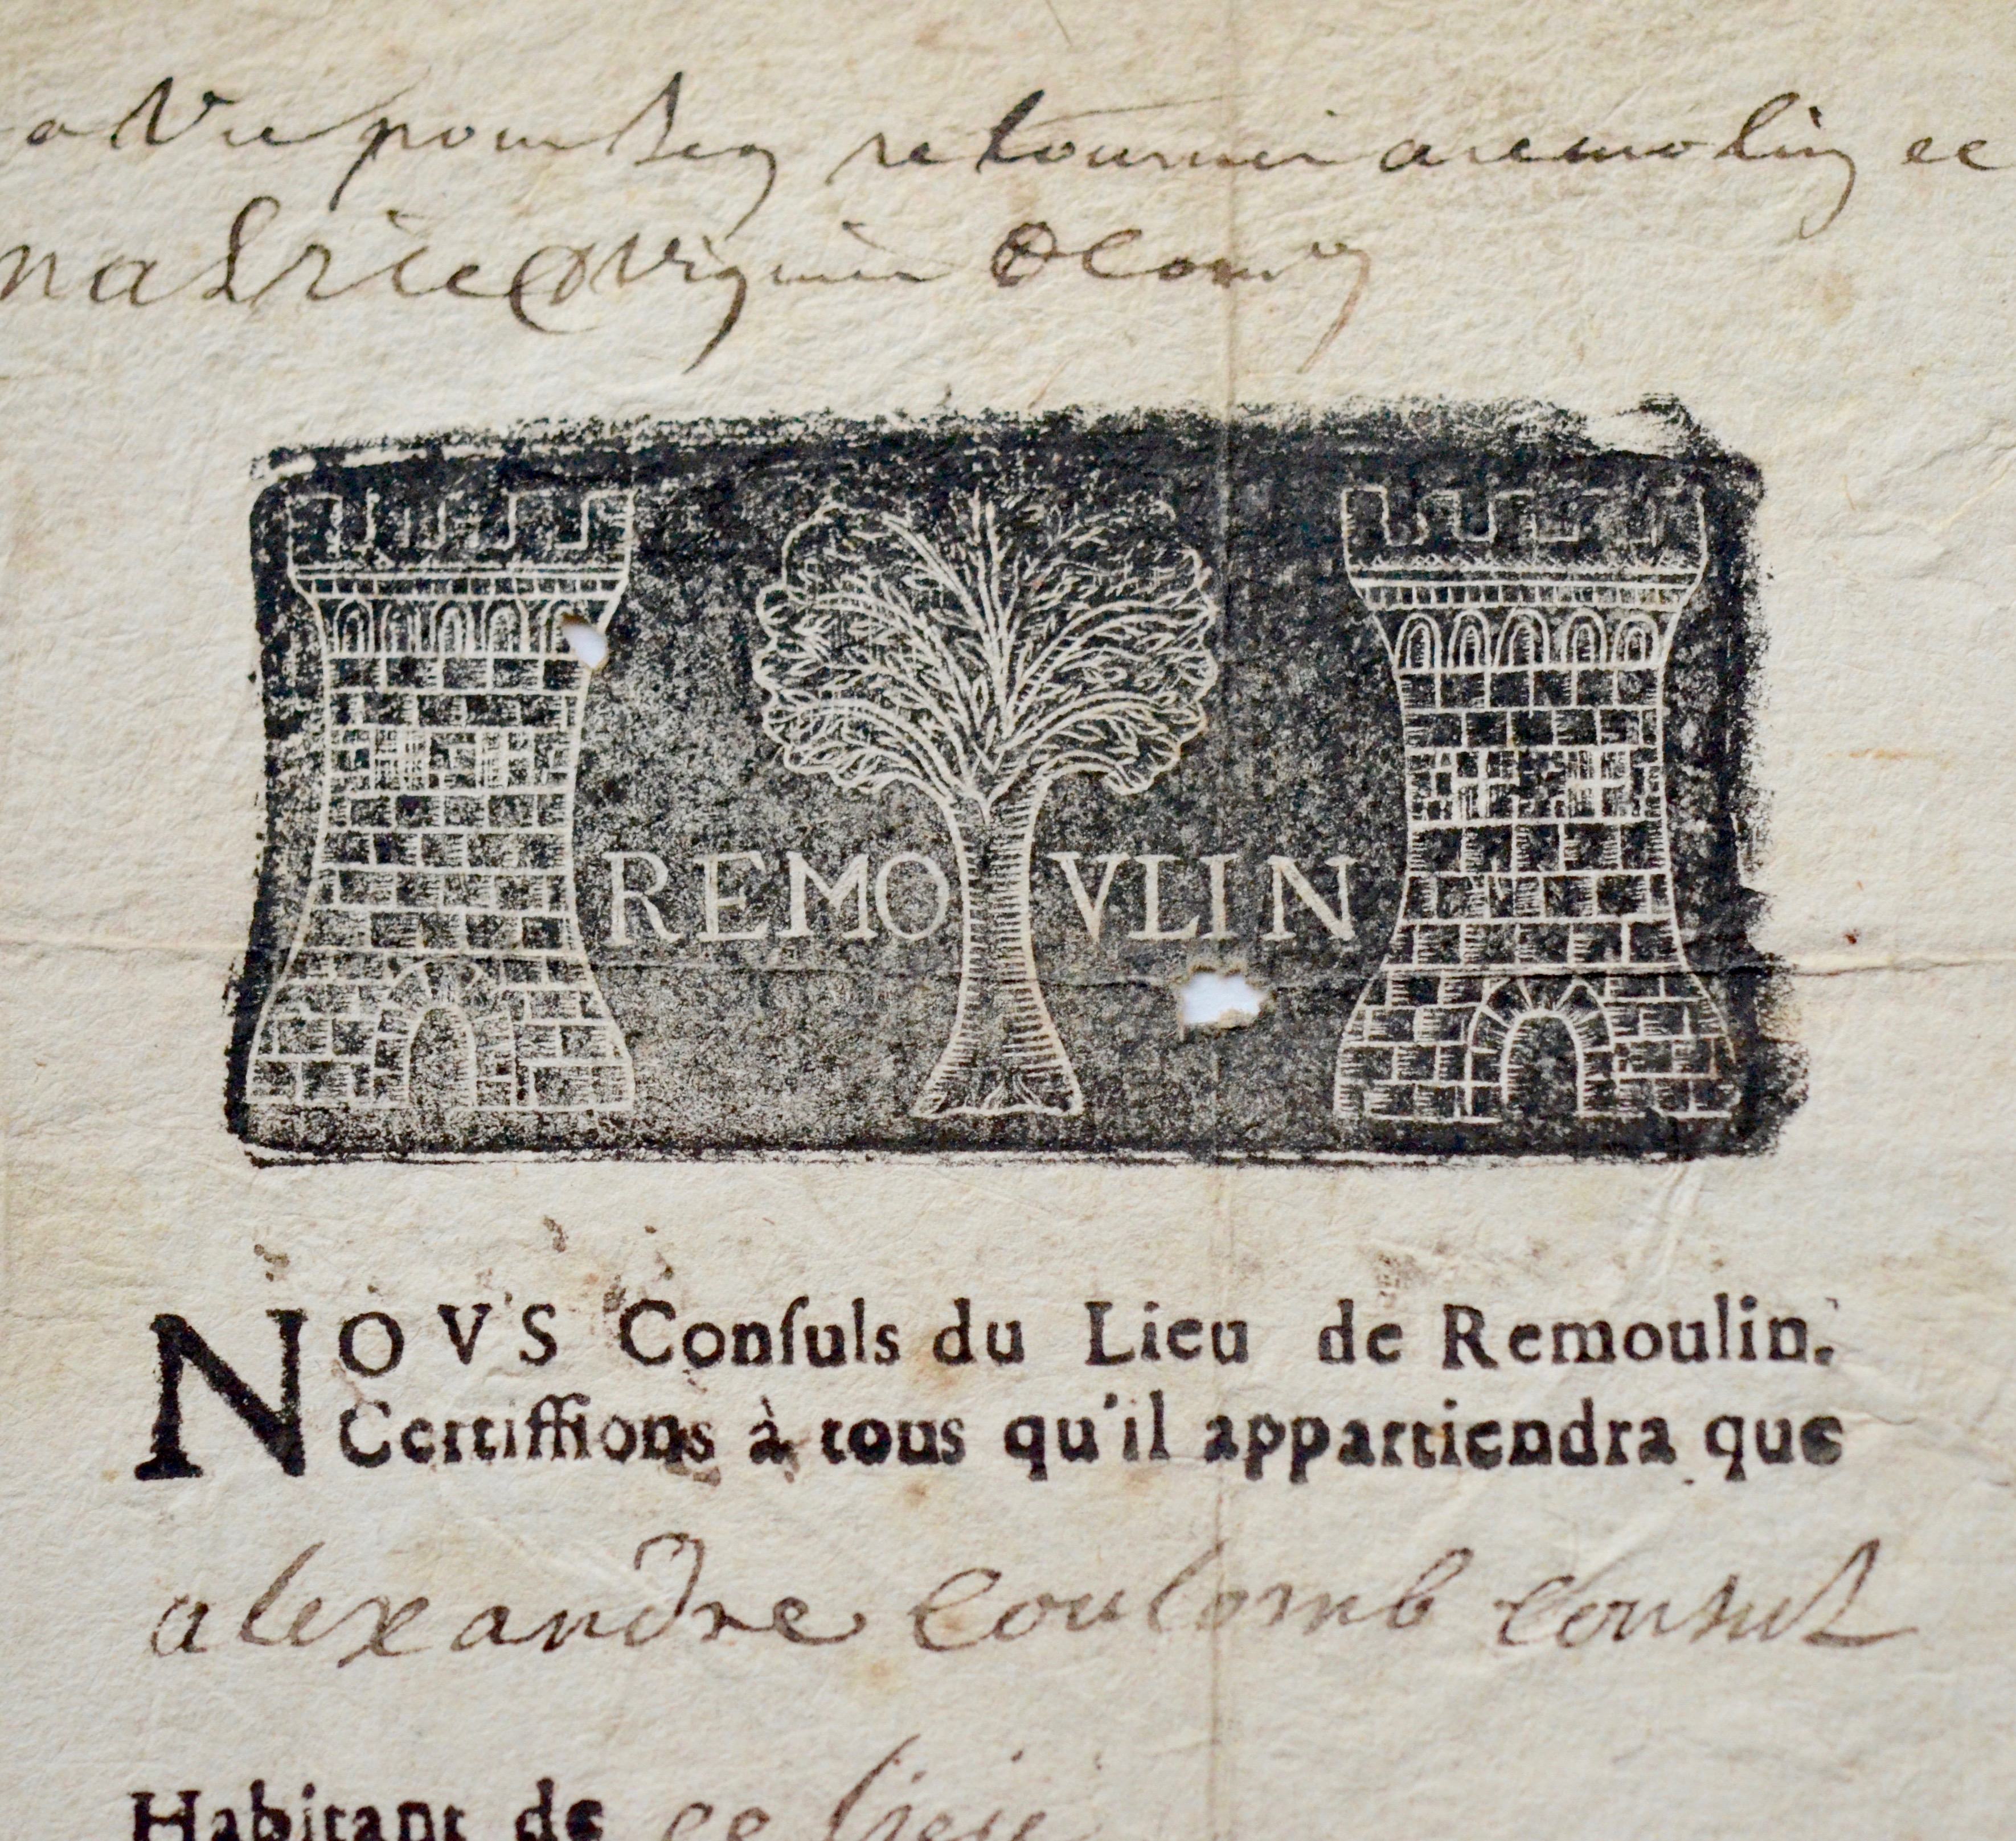 a Veu pour sen retourner a remolin ce
Viguier
REMOVLIN
NOVS Conſuls du Lieu de Remoulin.
Certiffions à tous qu'il appartiendra que
alexandre Coulomb Consul
Habitant de ce lieu